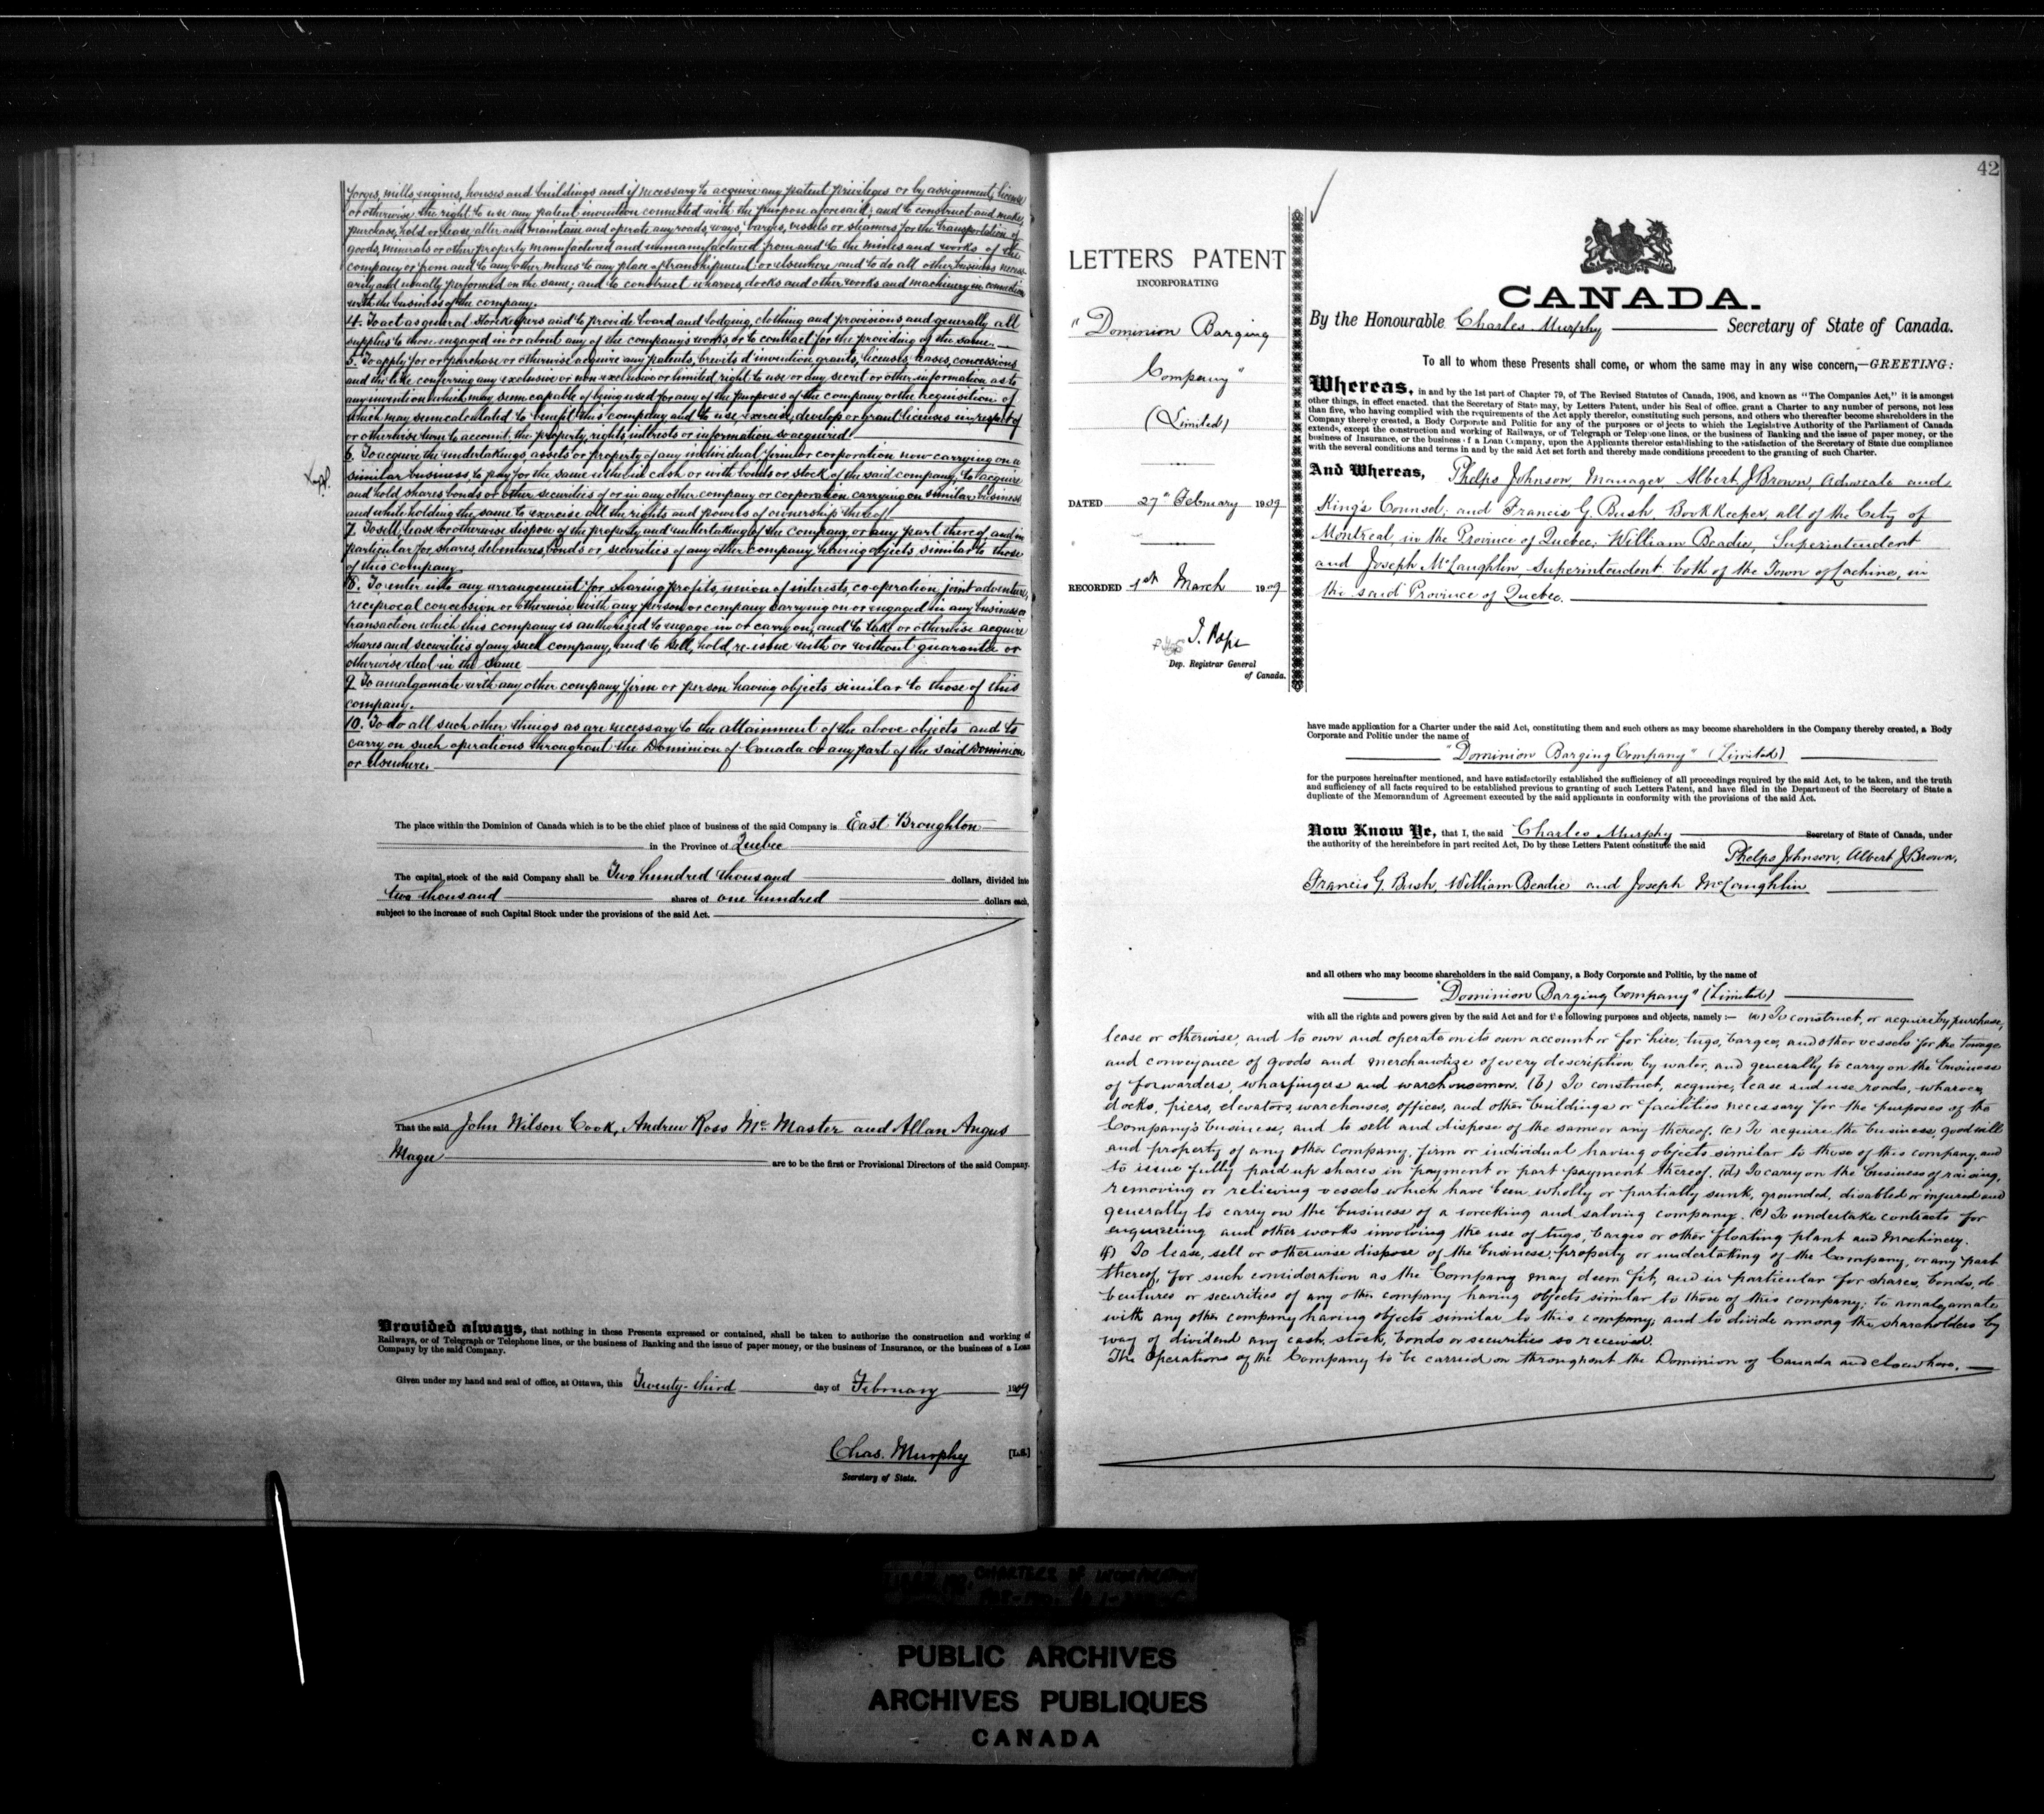 forges, mills, engines, houses and buildings and if necessary to acquire any patent privileges or by assignment, license
or otherwise the right to use any patent invention connected with the purpose aforesaid; and to construct and make,
purchase, hold or lease, alter and maintain and operate any roads, ways, barges, vessels or steamers for the transportation of
goods, minerals or other property manufactured and unmanufactured from and to the mines and works of the
company or from and to any other mines to any place of transhipment or elsewhere and to do all other business necess-
arily and usually performed on the same; and to construct wharves, docks and other works and machinery in connection
with the business of the company.
4. To act as general storekeepers and to provide board and lodging, clothing and provisions and generally all
supplies to those engaged in or about any of the company's works, or to contract for the providing of the same.
5. To apply for or purchase or otherwise acquire any patents, brevets d'invention grants, licenses, leases, concessions
and the like conferring any exclusive or non-exclusive or limited right to use or any secret or other information as to
any invention which may seem capable of being used for any of the purposes of the company or the acquisition of
which may seem calculated to benefit this company and to use, exercise, develop or grant licenses in respect of
or otherwise turn to account, the property, rights, interests or information so acquired.
6. To acquire the undertakings assets or property of any individual firm or corporation now carrying on a
similar business, to pay for the same either in cash or with bonds or stock of the said company, to acquire
and hold shares bonds or other securities of or in any other company or corporation carrying on similar business
and while holding the same to exercise all the rights and powers of ownership thereof.
7. To sell, lease or otherwise dispose of the property and undertaking of the company or any part thereof and in
particular for shares, debentures, bonds or securities of any other company having objects similar to those
of this company.
8. To enter into any arrangement for sharing profits, union of interests, co-operation, joint adventure,
reciprocal concession or otherwise with any person or company carrying on or engaged in any business or
transaction which this company is authorized to engage in or carry on; and to take or otherwise acquire
shares and securities of any such company, and to sell, hold, re-issue with or without guarantee or
otherwise deal in the same
9. To amalgamate with any other company, firm or person having objects similar to those of this
company.
10. To do all such other things as are necessary to the attainment of the above objects and to
carry on such operations throughout the Dominion of Canada or any part of the said Dominion
or elsewhere.
The place within the Dominion of Canada which is to be the chief place of business of the said Company is East Broughton
in the Province of Quebec
The capital stock of the said Company shall be Two hundred thousand dollars, divided into
two thousand shares of one hundred dollars each,
subject to the increase of such Capital Stock under the provisions of the said Act.
That the said John Wilson Cook, Andrew Ross Mc Master and Allan Angus
Magee are to be the first or Provisional Directors of the said Company.
Provided always, that nothing in these Presents expressed or contained, shall be taken to authorise the construction and working of
Railways, or of Telegraph or Telephone lines, or the business of Banking and the issue of paper money, or the business of Insurance, or the business of a Loan
Company by the said Company.
Given under my hand and seal of office, at Ottawa, this Twenty-third day of February 1909
Chas. Murphy [L.S.]
Secretary of State.
42
LETTERS PATENT
INCORPORATING
"Dominion Barging
Company"
(Limited)
DATED 27th February 1909
RECORDED 1st March 1909
J. Pope
Dep. Registrar General
of Canada.
CANADA.
By the Honourable Charles Murphy Secretary of State of Canada.
To all to whom these Presents shall come, or whom the same may in any wise concern,—GREETING:
Whereas, in and by the 1st part of Chapter 79, of The Revised Statutes of Canada, 1906, and known as "The Companies Act," it is amongst
other things, in effect enacted, that the Secretary of State may, by Letters Patent, under his Seal of office, grant a Charter to any number of persons, not less
than five, who having complied with the requirements of the Act apply therefor, constituting such persons, and others who thereafter become shareholders in the
Company thereby created, a Body Corporate and Politic for any of the purposes or objects to which the Legislative Authority of the Parliament of Canada
extends, except the construction and working of Railways, or of Telegraph or Telephone lines, or the business of Banking and the issue of paper money, or the
business of Insurance, or the business of a Loan Company, upon the Applicants therefor establishing to the satisfaction of the Secretary of State due compliance
with the several conditions and terms in and by the said Act set forth and thereby made conditions precedent to the granting of such Charter.
And Whereas, Phelps Johnson, Manager, Albert J Brown, Advocate and
King's Counsel; and Francis G. Bush Book Keeper, all of the City of
Montreal, in the Province of Quebec; William Beadie, Superintendent
and Joseph McLaughlin, Superintendent both of the Town of Lachine, in
the said Province of Quebec.
have made application for a Charter under the said Act, constituting them and such others as may become shareholders in the Company thereby created, a Body
Corporate and Politic under the name of
"Dominion Barging Company" (Limited)
for the purposes hereinafter mentioned, and have satisfactorily established the sufficiency of all proceedings required by the said Act, to be taken, and the truth
and sufficiency of all facts required to be established previous to granting of such Letters Patent, and have filed in the Department of the Secretary of State a
duplicate of the Memorandum of Agreement executed by the said applicants in conformity with the provisions of the said Act.
Now Know Ye, that I, the said Charles Murphy Secretary of State of Canada, under
the authority of the hereinbefore in part recited Act, Do by these Letters Patent constitute the said Phelps Johnson, Albert J Brown,
Francis G. Bush, William Beadie and Joseph McLaughlin
and all others who may become shareholders in the said Company, a Body Corporate and Politic, by the name of
"Dominion Barging Company" (Limited)
with all the rights and powers given by the said Act and for the following purposes and objects, namely:— (a) To construct, or acquire by purchase,
lease or otherwise, and to own and operate on its own account or for hire, tugs, barges, and other vessels for the towage
and conveyance of goods and merchandize of every description by water, and generally to carry on the business
of forwarders, wharfingers and warehousemen. (b) To construct, acquire, lease and use roads, wharves,
docks, piers, elevators, warehouses, offices, and other buildings or facilities necessary for the purposes of the
Company's business, and to sell and dispose of the same or any thereof. (c) To acquire the business, goodwill
and property of any other company, firm or individual having objects similar to those of this company, and
to issue fully paid up shares in payment or part payment thereof. (d) To carry on the business of raising,
removing or relieving vessels which have been wholly or partially sunk, grounded, disabled or injured and
generally to carry on the business of a wrecking and salving company. (e) To undertake contracts for
engineering and other works involving the use of tugs, barges or other floating plant and Machinery.
(f) To lease, sell or otherwise dispose of the business, property or undertaking of the Company, or any part
thereof, for such consideration as the Company may deem fit, and in particular for shares, bonds, de-
bentures or securities of any other company having objects similar to those of this company; to amalgamate
with any other company having objects similar to this company; and to divide among the shareholders by
way of dividend any cash, stock, bonds or securities so received.
The Operations of the Company to be carried on throughout the Dominion of Canada and elsewhere.
CHARTERS OF INCORPORATION
PUBLIC ARCHIVES
ARCHIVES PUBLIQUES
CANADA